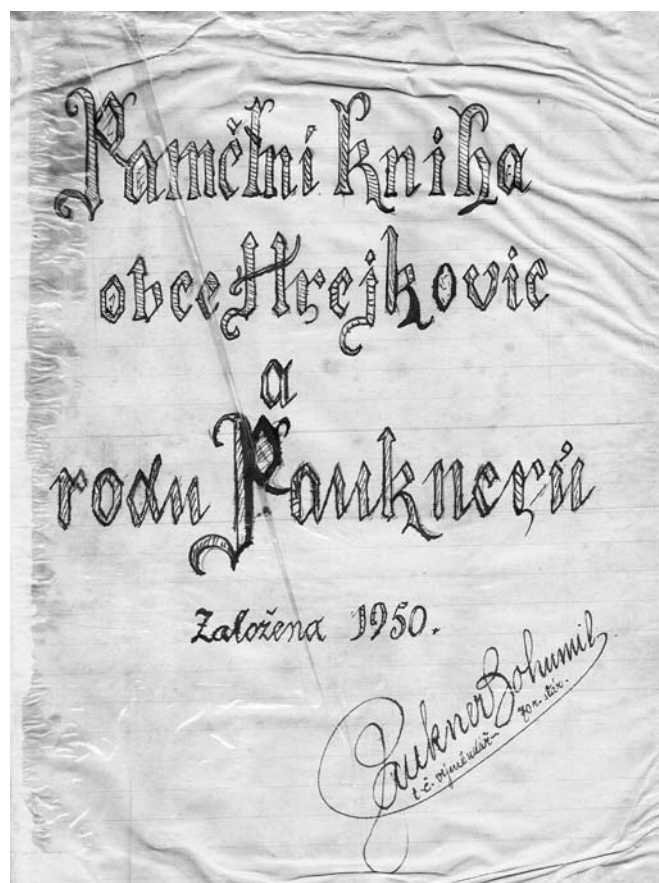 Pamětní kniha
obce Hrejkovic
a
rodu Pauknerů
Založena 1950.
Paukner Bohumil
t. č. výměnkář 70 r. stár.